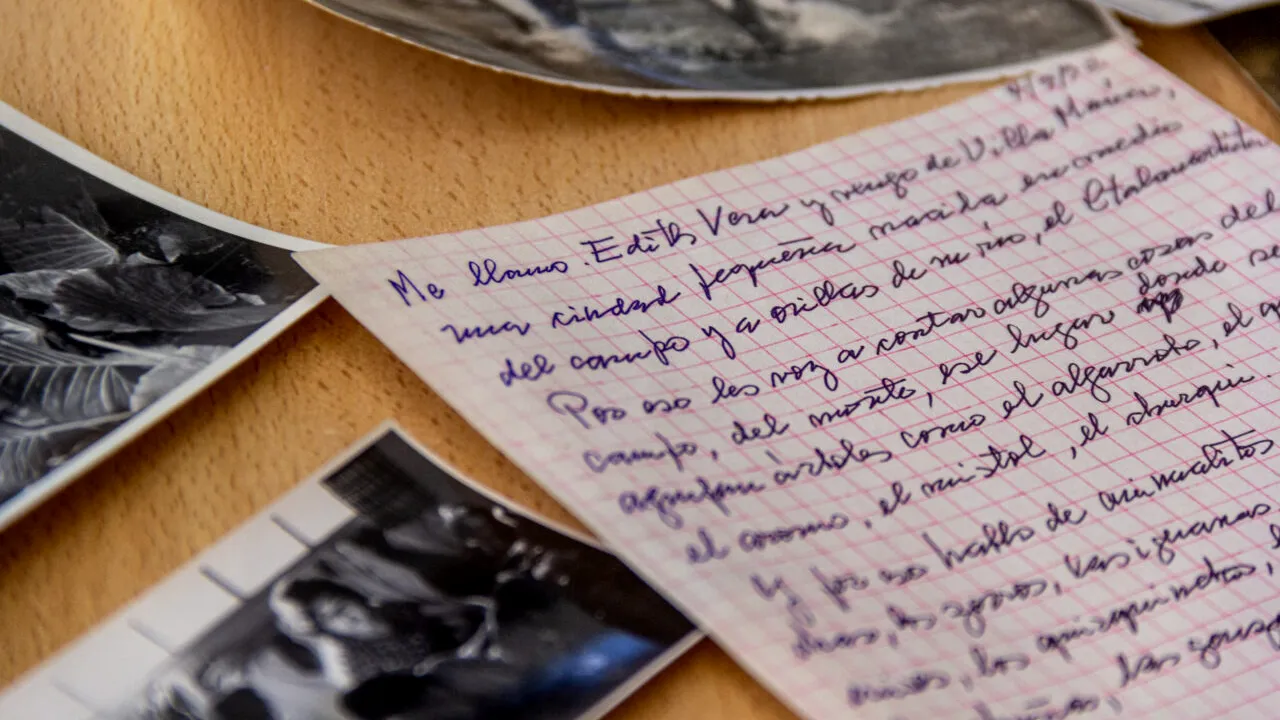 Me llamo Edith Vera y vengo de Villa María,
una ciudad pequeña nacida en medio
del campo y a orillas de un río, el Ctalamochita
Por eso les voy a contar algunas cosas del
campo, del monte, ese lugar donde se
agrupan árboles como el algarrobo, el
el coronno, el mistol, el churqui.
Y por eso hablo de animalitos
los zorros, las iguanas
los quirquinchos,
las